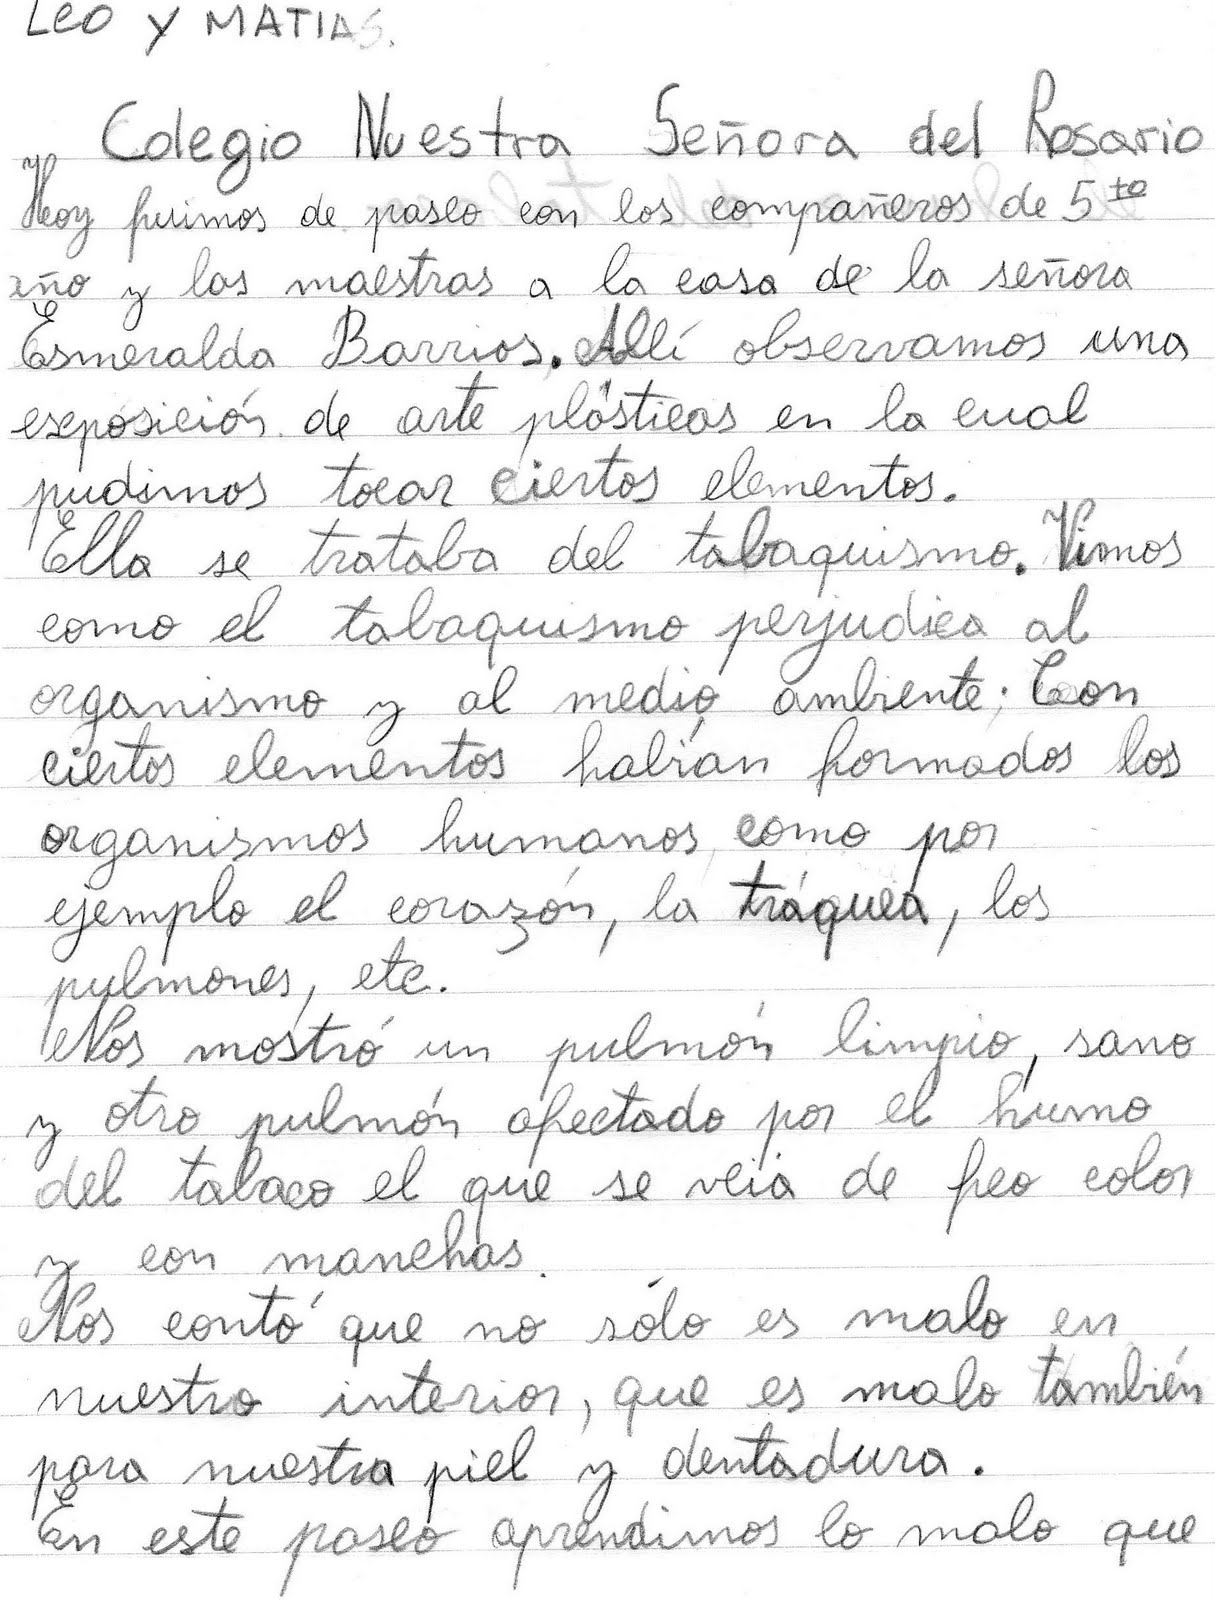 LEO Y MATIAS.
Colegio Nuestra Señora del Rosario
Hoy fuimos de paseo con los compañeros de 5to
año y las maestras a la casa de la señora
Esmeralda Barrios. Allí observamos una
exposición de arte plásticas en la cual
pudimos tocar ciertos elementos.
Ella se trataba del tabaquismo. Vimos
como el tabaquismo perjudica al
organismo y al medio ambiente; Con
ciertos elementos habían formados los
organismos humanos, como por
ejemplo el corazón, la tráquea, los
pulmones, etc.
Nos mostró un pulmón limpio, sano
y otro pulmón afectado por el humo
del tabaco el que se veía de feo color
y con manchas.
Nos contó que no sólo es malo en
nuestro interior, que es malo también
para nuestra piel y dentadura.
En este paseo aprendimos lo malo que